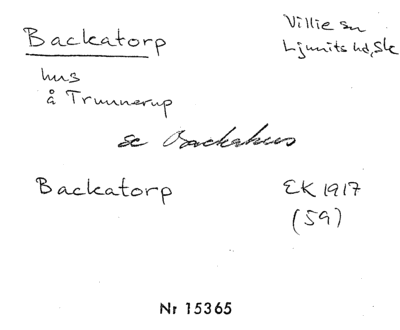 Backatorp
Villie sn
Ljunits hd, Sk
hus
å Trunnerup
se Backahus
Backatorp
EK 1917
(59)
Nr 15365